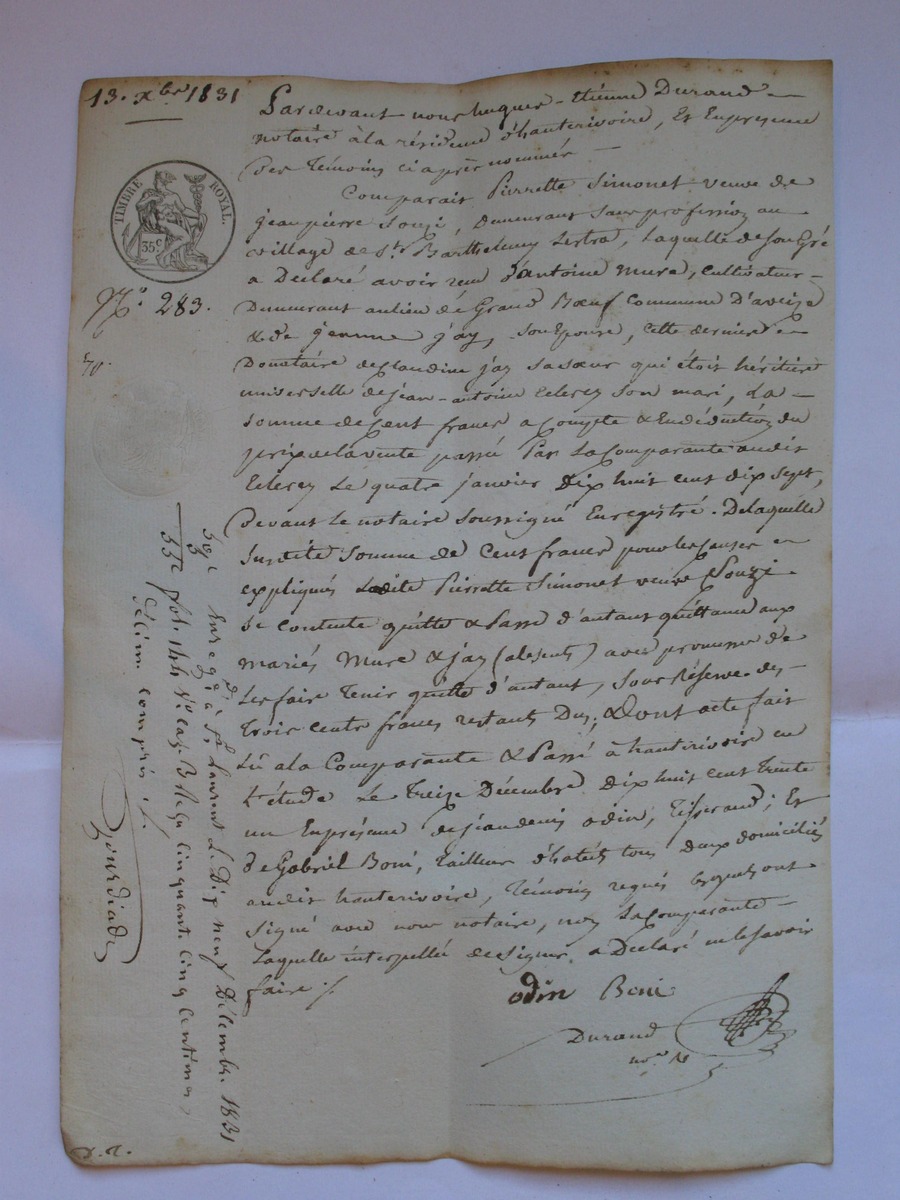 13. Xbre 1831
TIMBRE ROYAL.
35c
No. 283.
Pardevant nous hugues-etienne Durand
notaire à la résidence d'hauterivoire, Et En presence
des Témoins ci après nommés
Comparait Pierrette Simonet veuve de
jean pierre Souzi, demeurant sans profession au
village de St. Barthelemy Lestra, Laquelle de son Gré
a Declaré avoir reçu d'antoine Mure, Cultivateur
Demeurant au lieu de Grand Bœuf Commune D'aveize
& de jemme jay, son Epouse, cette derniere
Donataire de Claudine jay sa sœur qui étoit héritiere
universelle de jean-antoine Clerey son mari, La
somme de Cent francs a Compte & En déduction du
prix de la vente passée Par La Comparante audit
Clerey Le quatre janvier Dix huit cent dix sept,
devant Le notaire soussigné Enregistré. De laquelle
susdite somme de Cent francs pour les causes
expliqués Ladite Pierrette Simonet veuve Souzi
se contente quitte & Passe d'autant quittance aux
mariés Mure & jay (absents) avec promesse de
Les faire Tenir quitte d'autant, sous Réserve des
Trois cents francs restants Dus; & Dont acte fait
Lû a la Comparante & Passé à hauterivoire en
L'étude Le Treize Décembre Dix huit cent trente
un En présence de jean denis odin, Tisserand; Et
de Gabriel Boni, Tailleur d'habits tous Deux domiciliés
audit hauterivoire, Témoins requis lesquels ont
signé avec nous notaire, non La Comparante
Laquelle interpellée de signer a Declaré ne le savoir
faire ./.
odin Boni
Durand
nore
50c
5
55c
Enregé. à St. Laurent Le Dix neuf Décembre 1831
fol. 144 Vo. case 3 Reçu Cinquante cinq centimes
décime compris ./.
Gourdiade